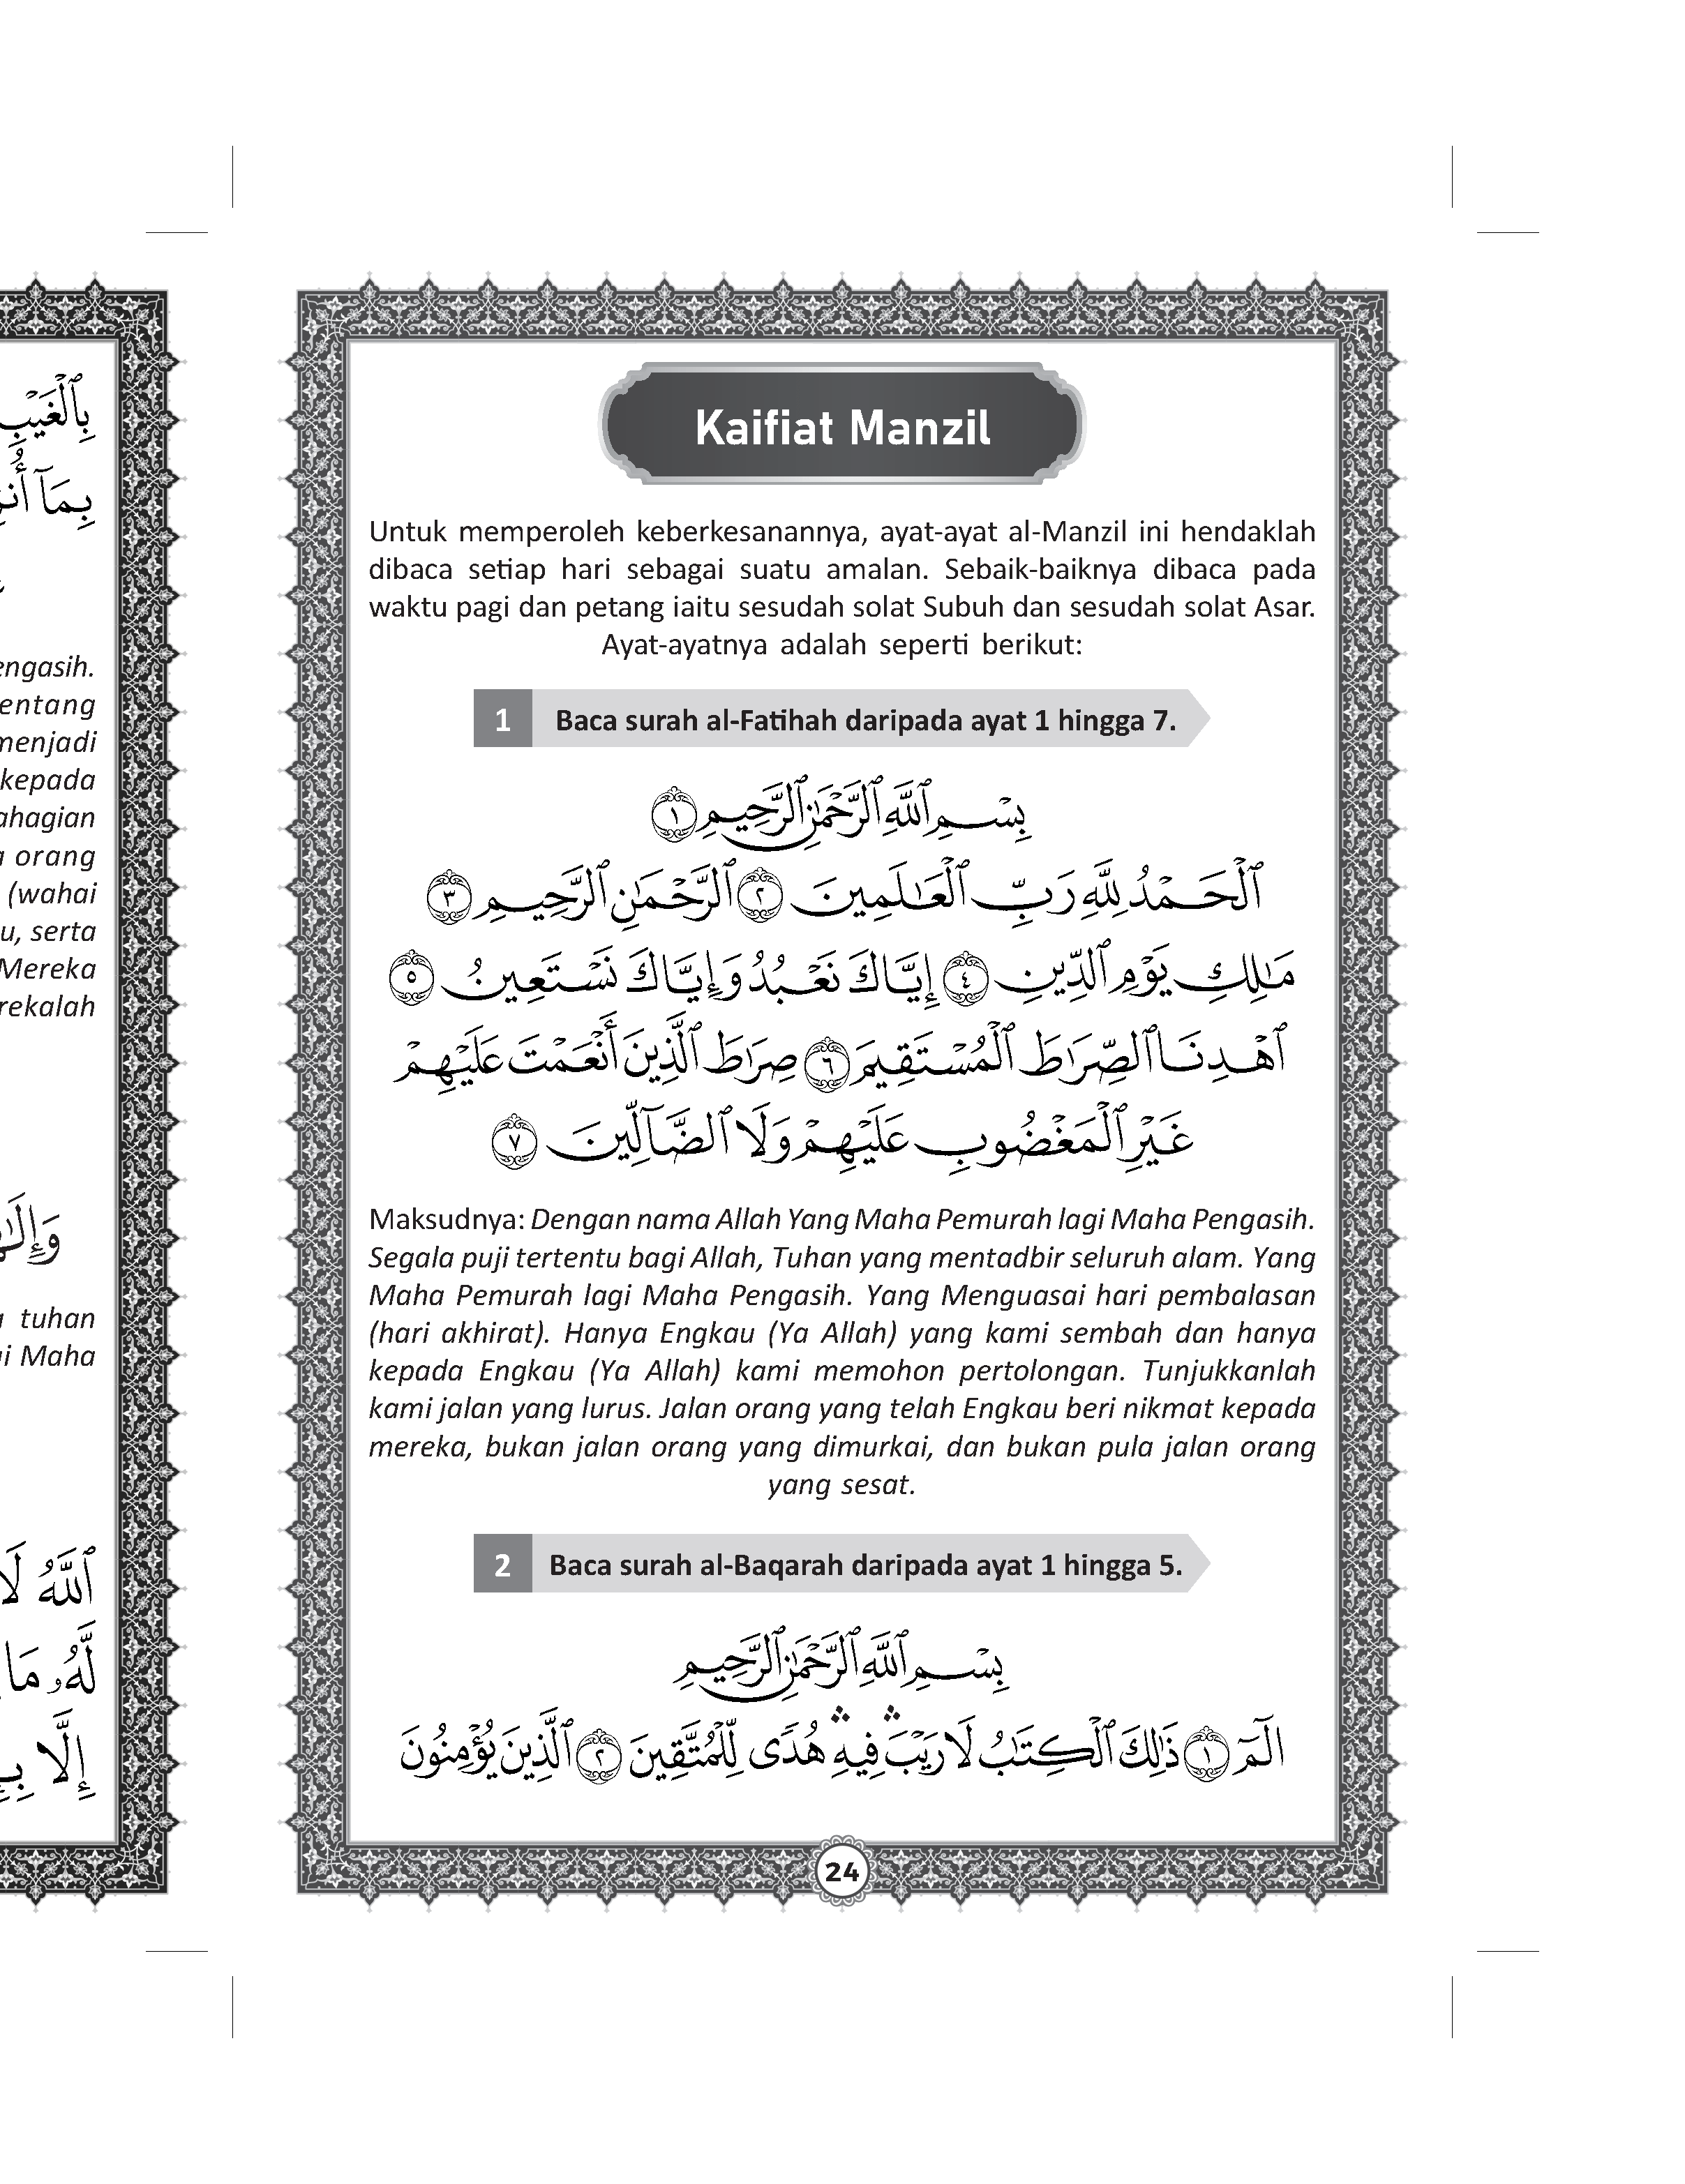 Kaifiat Manzil
Untuk memperoleh keberkesanannya, ayat-ayat al-Manzil ini hendaklah
dibaca setiap hari sebagai suatu amalan. Sebaik-baiknya dibaca pada
waktu pagi dan petang iaitu sesudah solat Subuh dan sesudah solat Asar.
Ayat-ayatnya adalah seperti berikut:
1 Baca surah al-Fatihah daripada ayat 1 hingga 7.
بِسْمِ ٱللَّهِ ٱلرَّحْمَٰنِ ٱلرَّحِيمِ ١
ٱلْحَمْدُ لِلَّهِ رَبِّ ٱلْعَٰلَمِينَ ٢ ٱلرَّحْمَٰنِ ٱلرَّحِيمِ ٣
مَٰلِكِ يَوْمِ ٱلدِّينِ ٤ إِيَّاكَ نَعْبُدُ وَإِيَّاكَ نَسْتَعِينُ ٥
ٱهْدِنَا ٱلصِّرَٰطَ ٱلْمُسْتَقِيمَ ٦ صِرَٰطَ ٱلَّذِينَ أَنْعَمْتَ عَلَيْهِمْ
غَيْرِ ٱلْمَغْضُوبِ عَلَيْهِمْ وَلَا ٱلضَّآلِّينَ ٧
Maksudnya: Dengan nama Allah Yang Maha Pemurah lagi Maha Pengasih.
Segala puji tertentu bagi Allah, Tuhan yang mentadbir seluruh alam. Yang
Maha Pemurah lagi Maha Pengasih. Yang Menguasai hari pembalasan
(hari akhirat). Hanya Engkau (Ya Allah) yang kami sembah dan hanya
kepada Engkau (Ya Allah) kami memohon pertolongan. Tunjukkanlah
kami jalan yang lurus. Jalan orang yang telah Engkau beri nikmat kepada
mereka, bukan jalan orang yang dimurkai, dan bukan pula jalan orang
yang sesat.
2 Baca surah al-Baqarah daripada ayat 1 hingga 5.
بِسْمِ ٱللَّهِ ٱلرَّحْمَٰنِ ٱلرَّحِيمِ
الٓمٓ ١ ذَٰلِكَ ٱلْكِتَٰبُ لَا رَيْبَ ۛ فِيهِ ۛ هُدًى لِّلْمُتَّقِينَ ٢ ٱلَّذِينَ يُؤْمِنُونَ
24
بِٱلْغَيْبِ
بِمَآ
entang
menjadi
kepada
orang
(wahai
serta
Mereka
tuhan
Maha
ٱللَّهُ لَا
لَّهُۥ مَا
إِلَّا